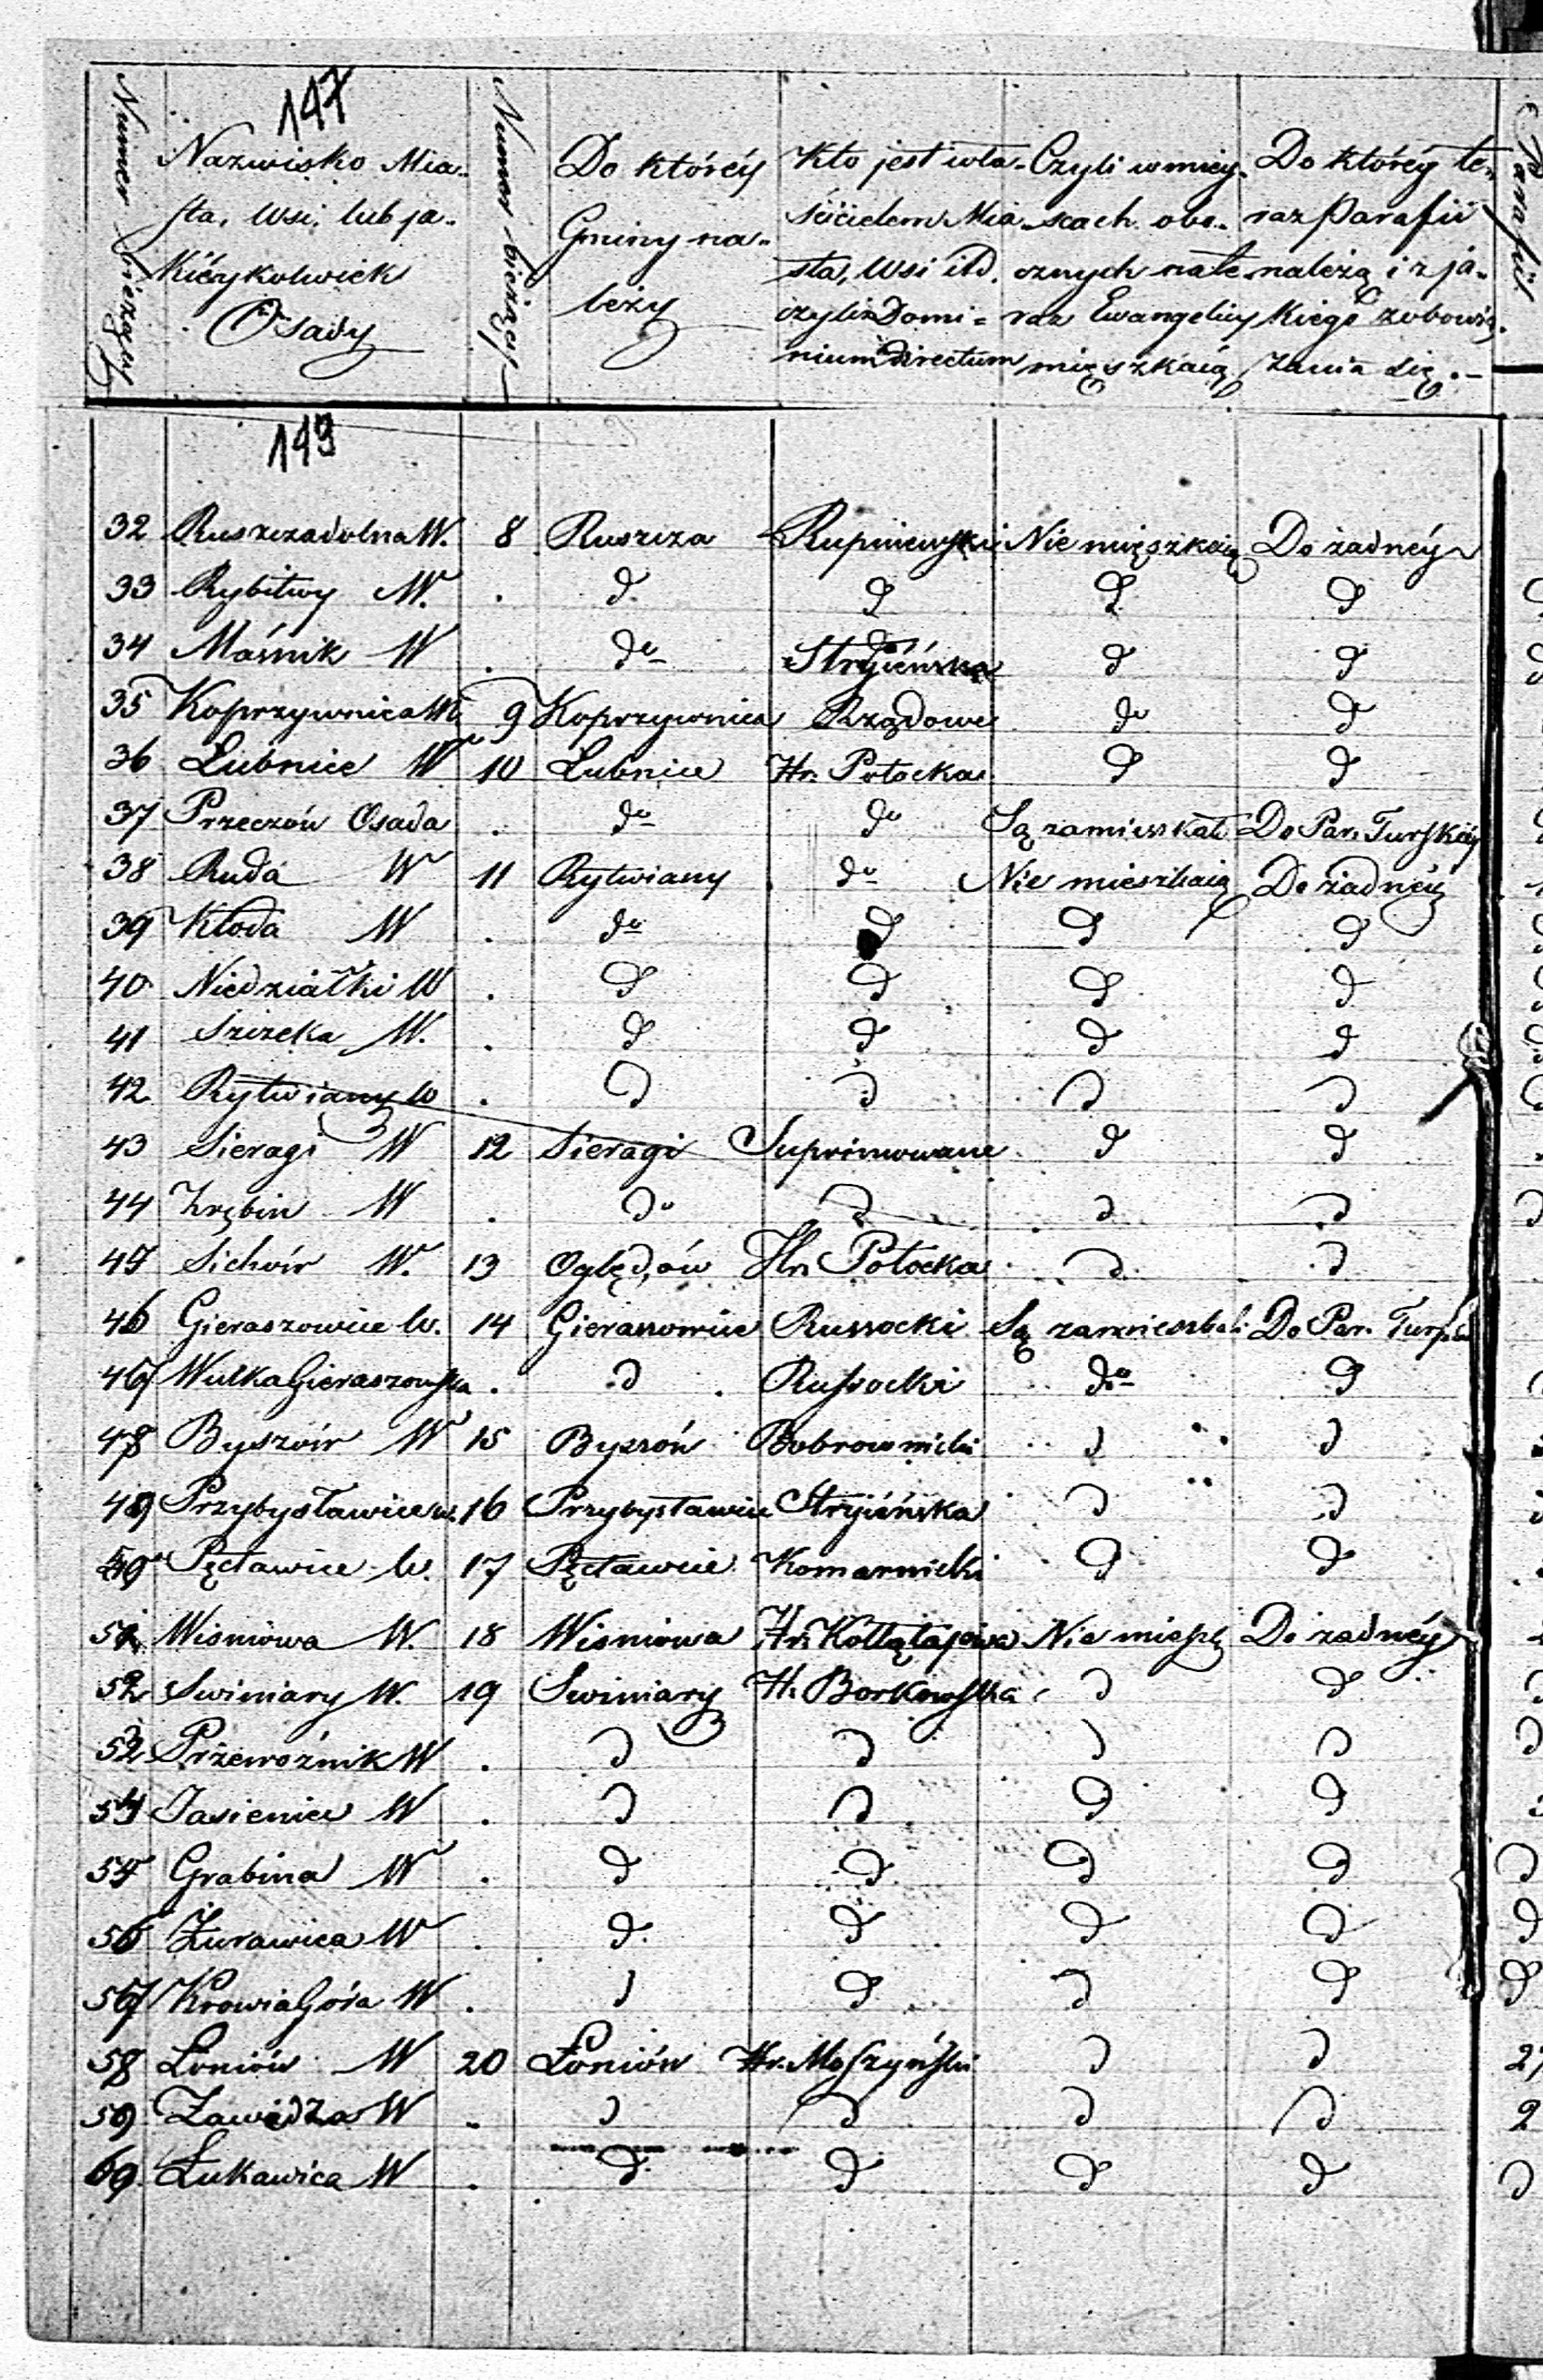 147
Numer bieżący
Nazwisko Mia-
sta, Wsi, lub ja-
kiéykolwiek
Osady
Numer bieżący
Do któréy
Gminy na-
leży
Kto jest wła-
ścicielem Mia-
sta, Wsi itd.
czyli Domi-
nium directum
Czyli w miey-
scach obo-
cznych nate
raz Ewangelicy
mięszkaią
Do któréy te-
raz Parafii
należą i z ja-
kiego zobowią-
zania się.
Parafii
149
32 Ruszcza dolna W. 8 Ruszcza Rupniewski Nie mięszkaią Do żadnéy
33 Rybitwy W. . d d d d
34 Maśnik W . do Stryieńska d d
35 Koprzywnica Mo 9 Koprzywnica Rządowe do d
36 Łubnice W 10 Łubnice Hr. Potocka d d
37 Przeczów Osada . do do Są zamieszkałe Do Par. Turskiéy
38 Ruda W 11 Rytwiany do Nie mieszkaią Do żadnéy
39 Kłoda W . do d d d
40 Niedziałki W . d d d d
41 Szczeka W. . d d d d
42 Rytwiany W . d d d d
43 Sieragi W 12 Sieragi Suprimowane d d
44 Zrębin W . do d d d
45 Sichów W. 13 Oględów Hr. Potocka d d
46 Gieraszowice W. 14 Gieraszowice Russocki Są zamieszkali Do Par. Tursk
47 Wulka Gieraszowska . d Russocki do d
48 Byszów W 15 Byszów Bobrownicki d d
49 Przybysławice W. 16 Przybysławice Stryieńska d d
50 Pęcławice W. 17 Pęcławice Komarnicki d d
51 Wisniowa W. 18 Wisniowa Hr. Kołłątajowa Nie mieszk Do żadnéy
52 Swiniary W. 19 Swiniary H. Borkowska d d
53 Przewoźnik W . d d d d
54 Jasienica W . d d d d
55 Grabina W . d d d d
56 Żurawica W . d d d d
57 Krowia Góra W . d d d d
58 Łoniów W 20 Łoniów Hr. Moszyński d d
59 Zawidza W . d d d d
60 Łukawica W . d d d d